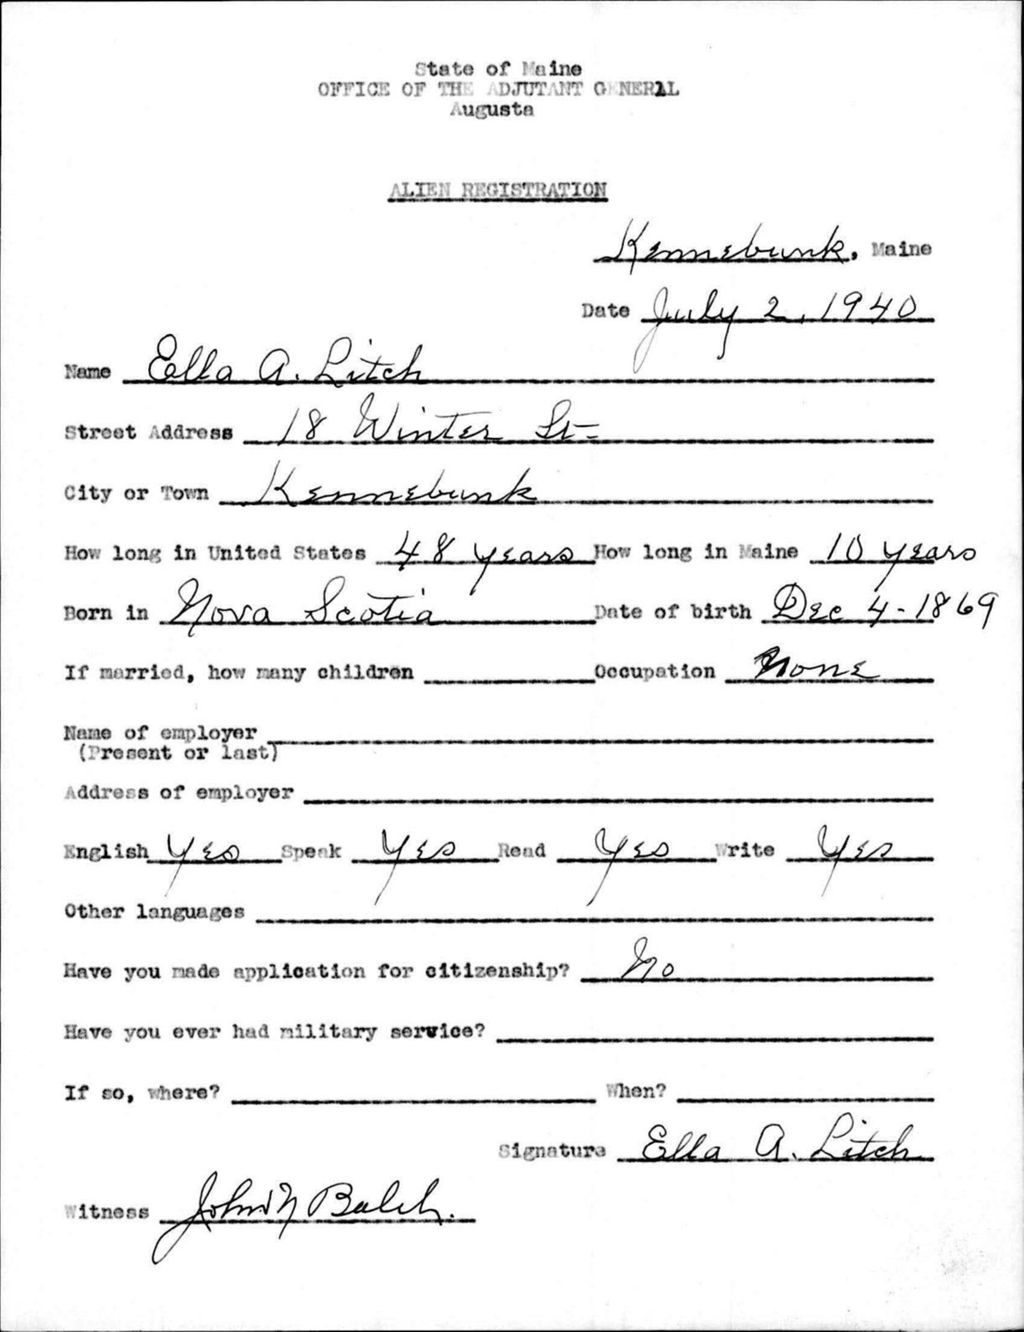 State of Maine
OFFICE OF THE ADJUTANT GENERAL
Augusta
ALIEN REGISTRATION
Kennebunk, Maine
Date July 2, 1940
Name Ella A. Litch
Street Address 18 Winter St-
City or Town Kennebunk
How long in United States 48 years How long in Maine 10 years
Born in Nova Scotia Date of birth Dec 4-1869
If married, how many children Occupation None
Name of employer
(Present or last)
Address of employer
English Yes Speak Yes Read Yes Write Yes
Other languages
Have you made application for citizenship? No
Have you ever had military service?
If so, where? When?
Signature Ella A. Litch
Witness John N Balch.